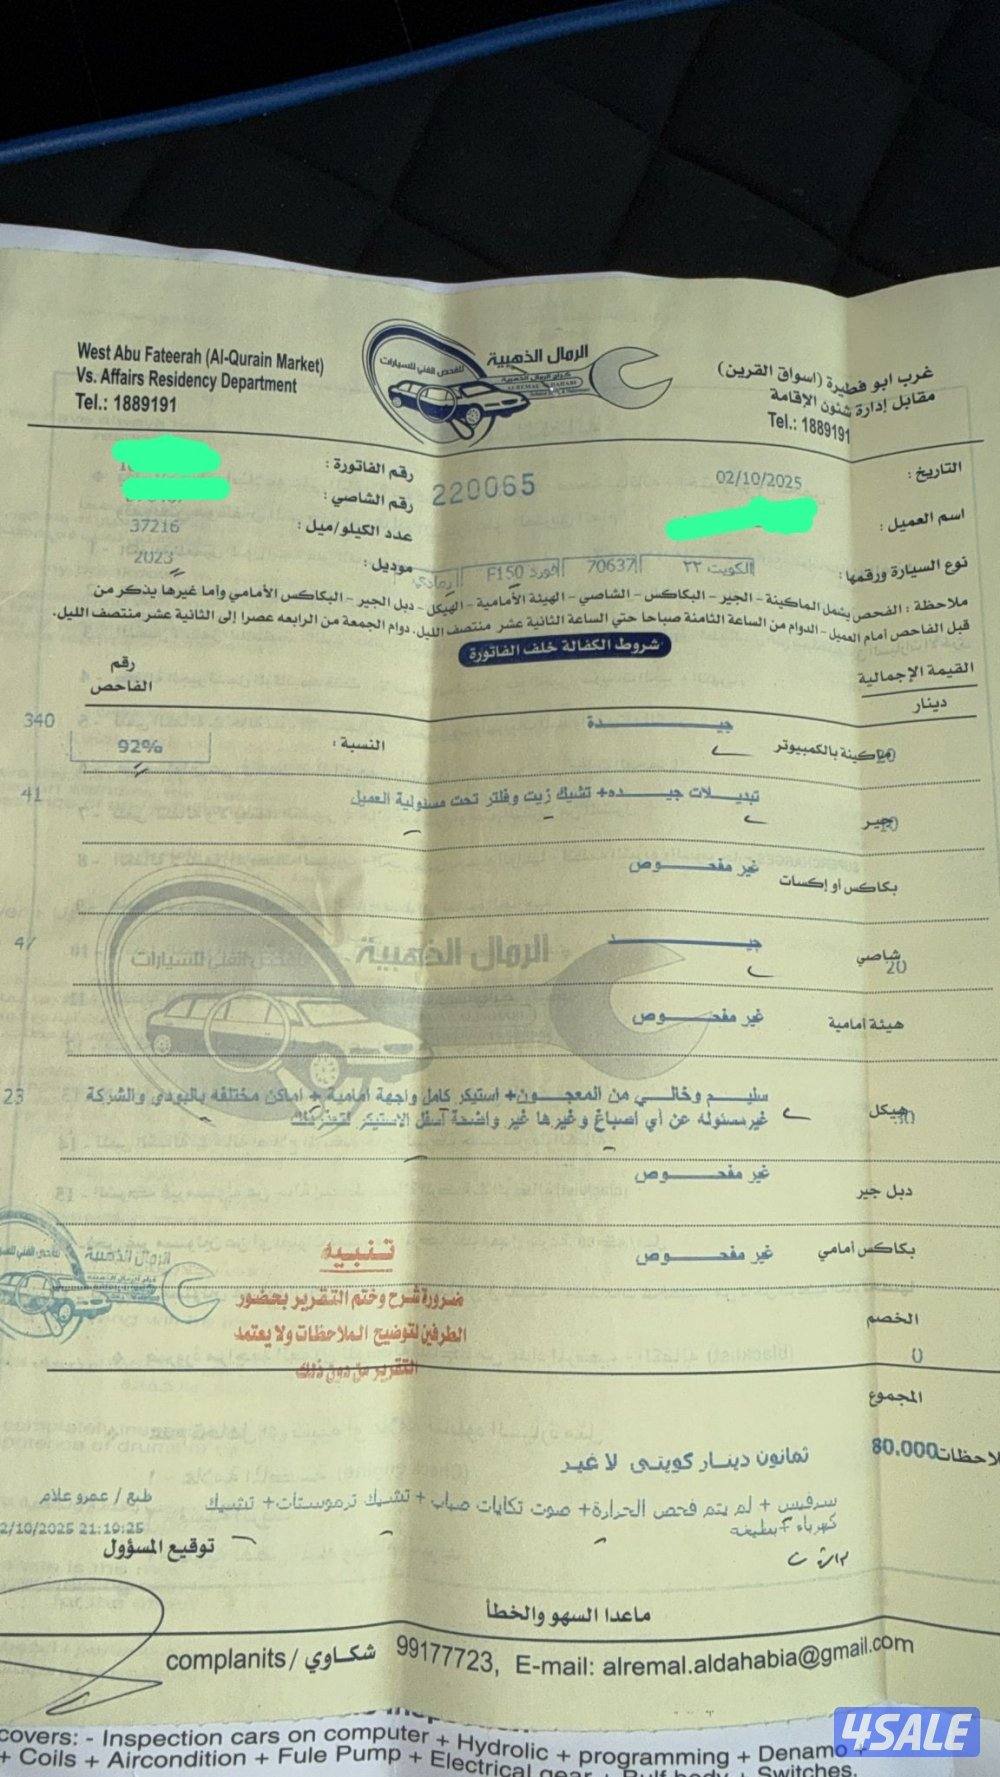 West Abu Fateerah (Al-Qurain Market)
Vs. Affairs Residency Department
Tel.: 1889191
الرمال الذهبية
للفحص الفني للسيارات
كراج الرمال الذهبية
غرب ابو فطيرة (اسواق القرين)
مقابل إدارة شئون الإقامة
Tel.: 1889191
التاريخ : 02/10/2025
220065
رقم الفاتورة :
رقم الشاصي :
اسم العميل :
عدد الكيلو/ميل : 37216
نوع السيارة ورقمها : الكويت ٢٢ 70637 فورد F150 رمادي
موديل : 2023
ملاحظة : الفحص يشمل الماكينة - الجير - البكاكس - الشاصي - الهيئة الأمامية - الهيكل - دبل الجير - البكاكس الأمامي وأما غيرها يذكر من
قبل الفاحص أمام العميل - الدوام من الساعة الثامنة صباحا حتي الساعة الثانية عشر منتصف الليل. دوام الجمعة من الرابعه عصرا إلى الثانية عشر منتصف الليل.
شروط الكفالة خلف الفاتورة
القيمة الإجمالية
دينار
رقم
الفاحص
ماكينة بالكمبيوتر جيدة
النسبة : 92% 340
جير تبديلات جيده+ تشيك زيت وفلتر تحت مسئولية العميل 41
بكاكس أو إكسات غير مفحوص
شاصي 20 جيد 47
الرمال الذهبية
للفحص الفني للسيارات
هيئة أمامية غير مفحوص
هيكل سليم وخالي من المعجون+ استيكر كامل واجهة امامية + اماكن مختلفه بالبودي والشركة 23
غير مسئوله عن أي أصباغ وغيرها غير واضحة أسفل الاستيكر
دبل جير غير مفحوص
بكاكس أمامي غير مفحوص
الرمال الذهبية
تنبيه
ضرورة شرح وختم التقرير بحضور
الطرفين لتوضيح الملاحظات ولا يعتمد
التقرير من دون ذلك
الخصم
0
المجموع
80.000 ثمانون دينار كويتى لا غير
سرفيس + لم يتم فحص الحرارة+ صوت تكايات صباب + تشيك ترموستات+ تشيك
كهرباء +
طبع / عمرو علام
2/10/2025 21:19:25
توقيع المسؤول
ماعدا السهو والخطأ
complanits / شكاوي 99177723, E-mail: alremal.aldahabia@gmail.com
covers: - Inspection cars on computer + Hydrolic + programming + Denamo +
+ Coils + Aircondition + Fule Pump + Electrical gear + Bulf body + Switches.
4SALE